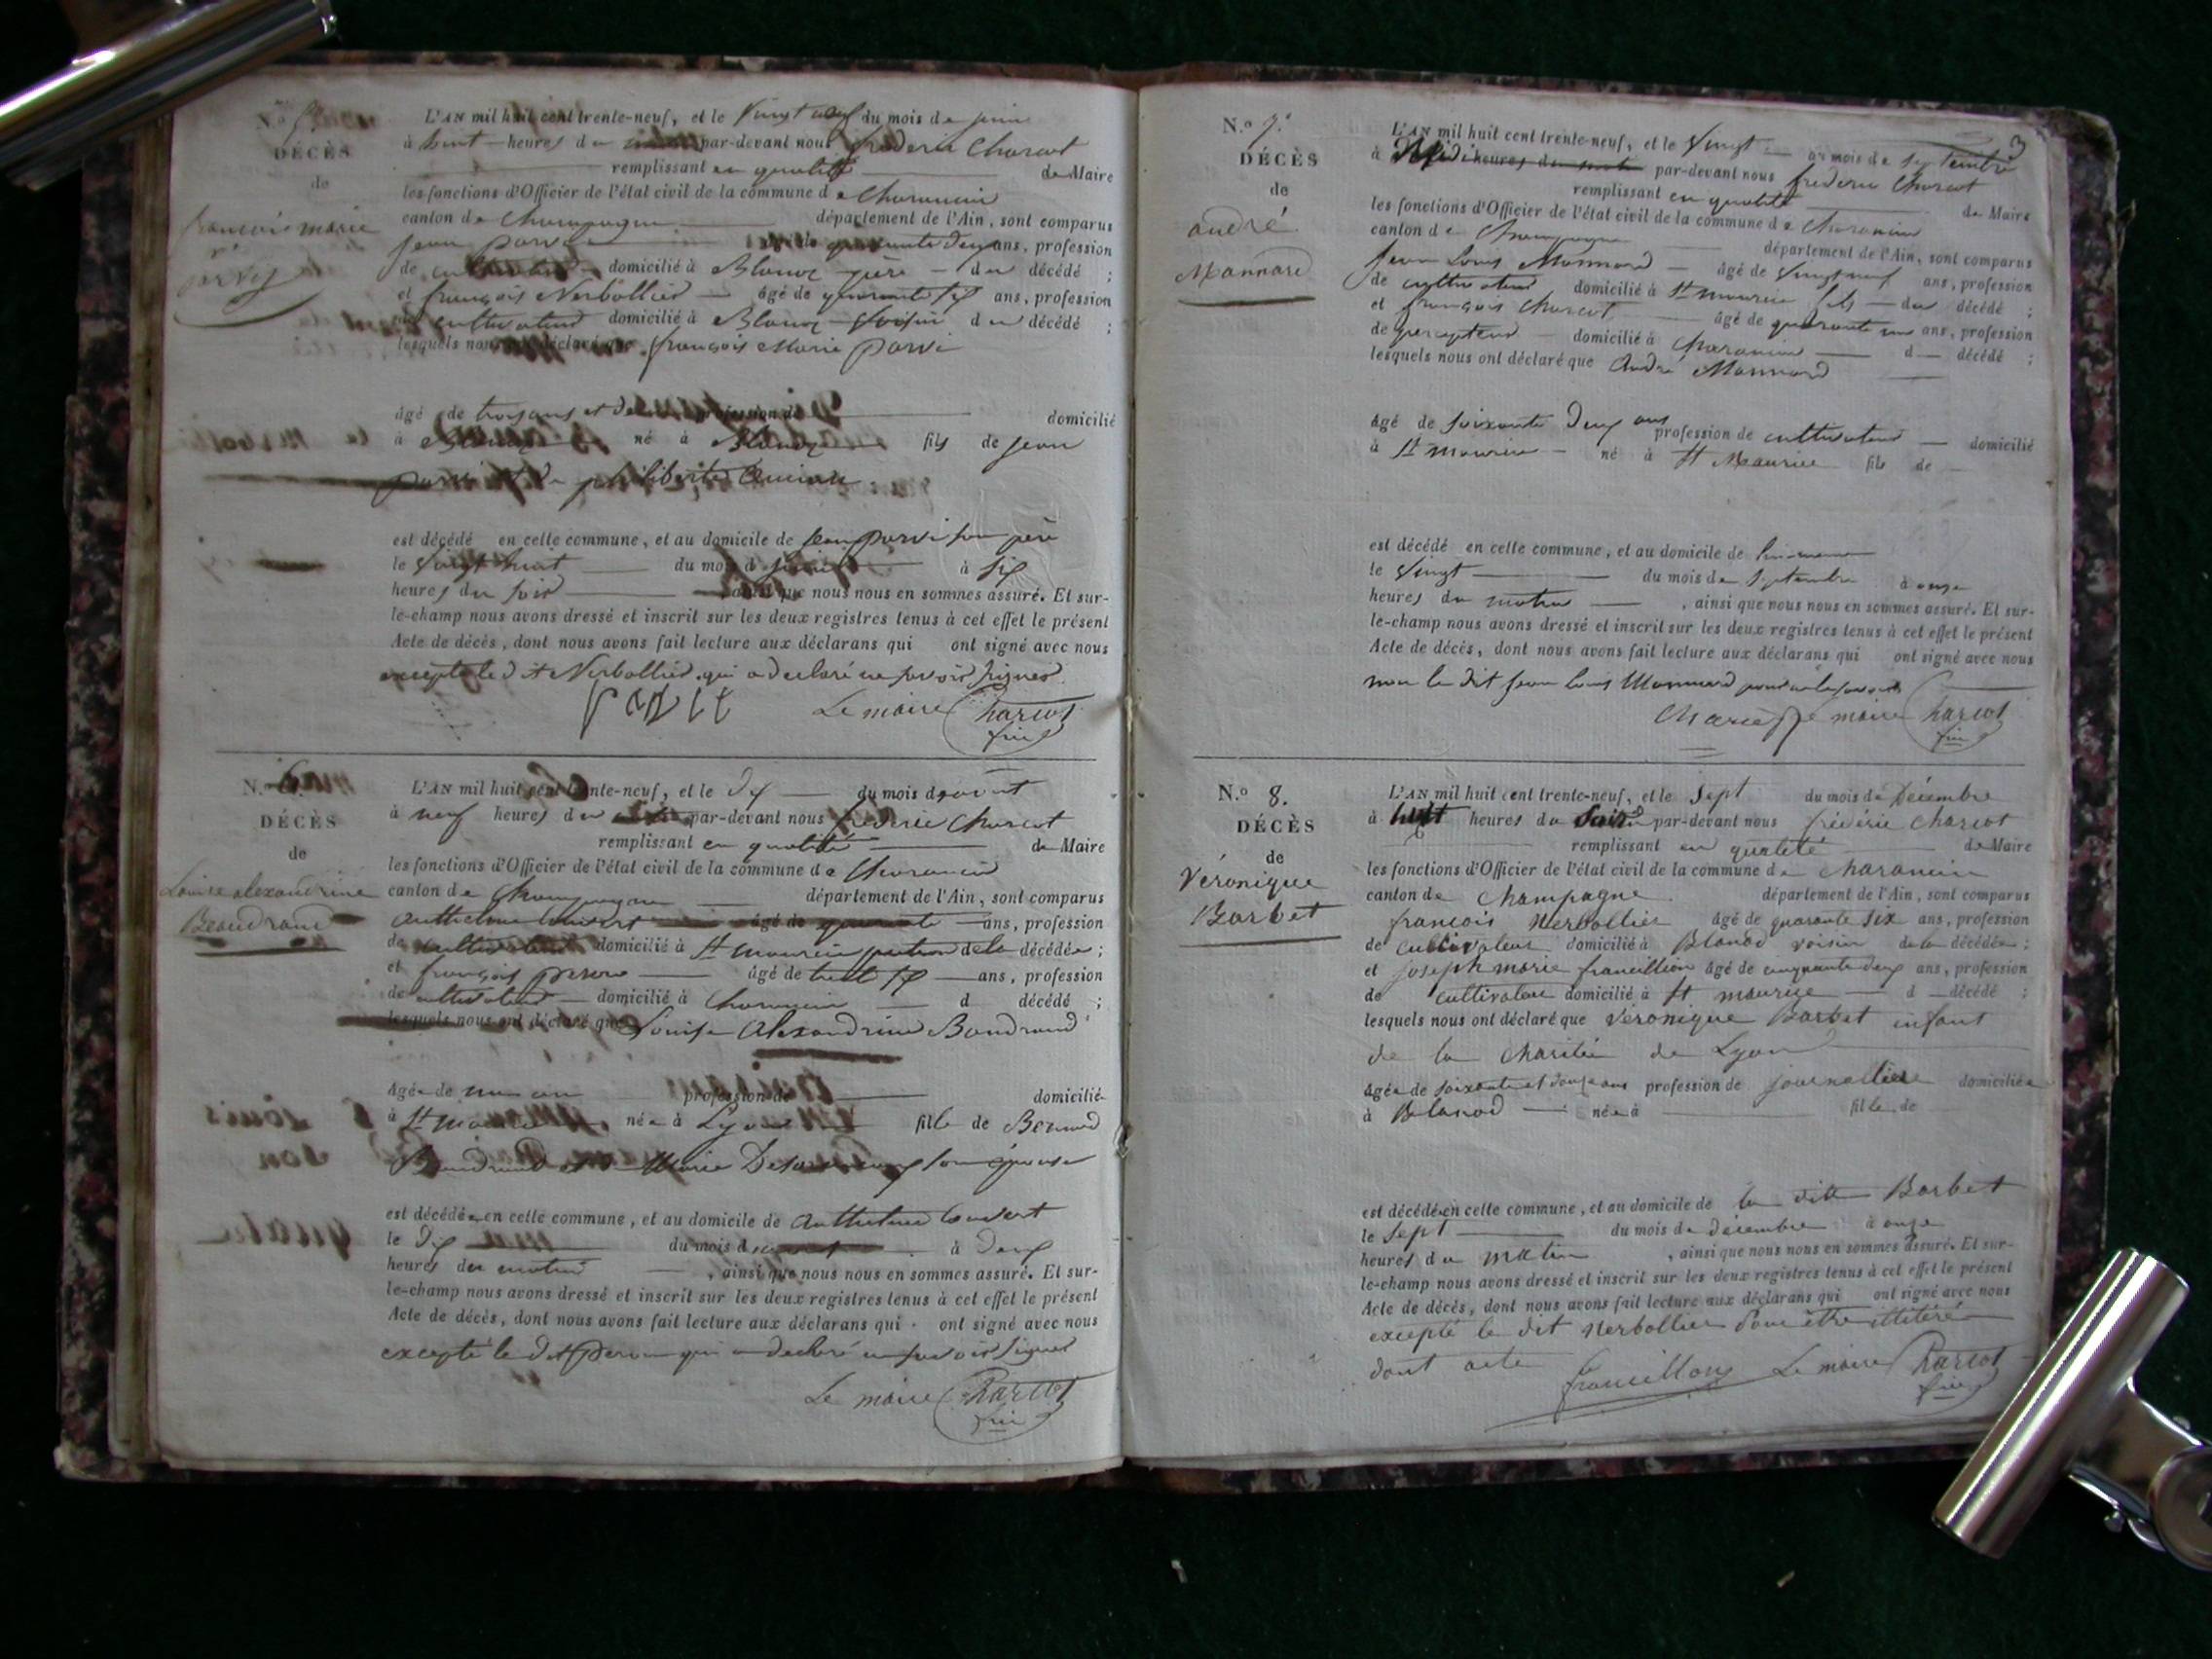 N.o 5.
DÉCÈS
de
françois marie
parvi
L'AN mil huit cent trente-neuf, et le vingt neuf du mois de juin
à huit heures du matin par-devant nous frédéric Charcot
remplissant en qualité de Maire
les fonctions d'Officier de l'état civil de la commune de Charancin
canton de Champagne département de l'Ain, sont comparus
jean parvi âgé de quarante deux ans, profession
de cultivateur domicilié à Blanod père du décédé ;
et françois Nerbollier âgé de quarante six ans, profession
de cultivateur domicilié à Blanod voisin du décédé ;
lesquels nous ont déclaré que françois Marie parvi
âgé de trois ans et profession de domicilié
à Blanod né à Blanod fils de jean
parvi et de philiberte
est décédé en cette commune, et au domicile de jean parvi son père
le vingt huit du mois de juin à six
heures du soir , ainsi que nous nous en sommes assuré. Et sur-
le-champ nous avons dressé et inscrit sur les deux registres tenus à cet effet le présent
Acte de décès, dont nous avons fait lecture aux déclarans qui ont signé avec nous
excepté le dit Nerbollier qui a declaré ne savoir signer
Le maire Charcot
N.o 6.
DÉCÈS
de
Louise alexandrine
Beaudrand
L'AN mil huit cent trente-neuf, et le dix du mois d'aout
à neuf heures du matin par-devant nous frédéric Charcot
remplissant en qualité de Maire
les fonctions d'Officier de l'état civil de la commune de Charancin
canton de Champagne département de l'Ain, sont comparus
Anthelme Couvert âgé de quarante ans, profession
de cultivateur domicilié à St maurice patron de la décédée ;
et françois peron âgé de trente six ans, profession
de cultivateur domicilié à Charancin d décédé ;
lesquels nous ont déclaré que Louise Alexandrine Baudrand
âgée de un an profession de domiciliée
à St maurice née à Lyon fille de Bernard
Baudrand et de Marie son épouse
est décédée en cette commune, et au domicile de Anthelme Couvert
le dix du mois d'aout à deux
heures du matin , ainsi que nous nous en sommes assuré. Et sur-
le-champ nous avons dressé et inscrit sur les deux registres tenus à cet effet le présent
Acte de décès, dont nous avons fait lecture aux déclarans qui ont signé avec nous
excepté le dit peron qui a declaré ne savoir signer
Le maire Charcot
3
N.o 7.
DÉCÈS
de
andré
Monnard
L'AN mil huit cent trente-neuf, et le vingt du mois de septembre
à Midi heures du par-devant nous frederic Charcot
remplissant en qualité de Maire
les fonctions d'Officier de l'état civil de la commune de Charancin
canton de Champagne département de l'Ain, sont comparus
Jean Louis Monnard âgé de vingt neuf ans, profession
de cultivateur domicilié à St maurice fils du décédé ;
et françois Charcot âgé de quarante un ans, profession
de percepteur domicilié à Charancin d décédé ;
lesquels nous ont déclaré que André Monnard
âgé de soixante deux ans profession de cultivateur domicilié
à St maurice né à St Maurice fils de
est décédé en cette commune, et au domicile de lui-meme
le vingt du mois de septembre à onze
heures du matin , ainsi que nous nous en sommes assuré. Et sur-
le-champ nous avons dressé et inscrit sur les deux registres tenus à cet effet le présent
Acte de décès, dont nous avons fait lecture aux déclarans qui ont signé avec nous
non le dit jean louis Monnard pour ne le savoir
Charcot Le maire Charcot
N.o 8.
DÉCÈS
de
Véronique
Barbet
L'AN mil huit cent trente-neuf, et le sept du mois de Décembre
à heures du Soir par-devant nous frédéric Charcot
remplissant en qualité de Maire
les fonctions d'Officier de l'état civil de la commune de Charancin
canton de Champagne département de l'Ain, sont comparus
françois Nerbollier âgé de quarante six ans, profession
de cultivateur domicilié à Blanod voisin de la décédée ;
et joseph marie francillion âgé de cinquante deux ans, profession
de cultivateur domicilié à St maurice d décédé ;
lesquels nous ont déclaré que Véronique Barbet enfant
de la charitée de Lyon
âgée de soixante et douze ans profession de journalière domiciliée
à Blanod née à fille de
est décédée en cette commune, et au domicile de la ditte Barbet
le sept du mois de décembre à onze
heures du matin , ainsi que nous nous en sommes assuré. Et sur-
le-champ nous avons dressé et inscrit sur les deux registres tenus à cet effet le présent
Acte de décès, dont nous avons fait lecture aux déclarans qui ont signé avec nous
excepté le dit Nerbollier pour être illitéré
dont acte francillon Le maire Charcot